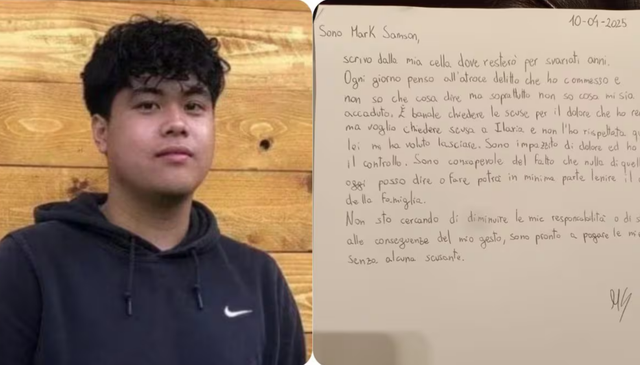 10-04-2025
Sono Mark Samson,
scrivo dalla mia cella dove resterò per svariati anni.
Ogni giorno penso all'atroce delitto che ho commesso e
non so che cosa dire ma soprattutto non so cosa mi sia
accaduto. È banale chiedere le scuse per il dolore che ho
ma voglio chiedere scusa a Ilaria e non l'ho rispettata
lei mi ha voluto lasciare. Sono impazzito di dolore ed ho
il controllo. Sono consapevole del fatto che nulla di
oggi posso dire o fare potrà in minima parte lenire il
della famiglia.
Non sto cercando di diminuire le mie responsabilità o di
alle conseguenze del mio gesto, sono pronto a pagare le
senza alcuna scusante.